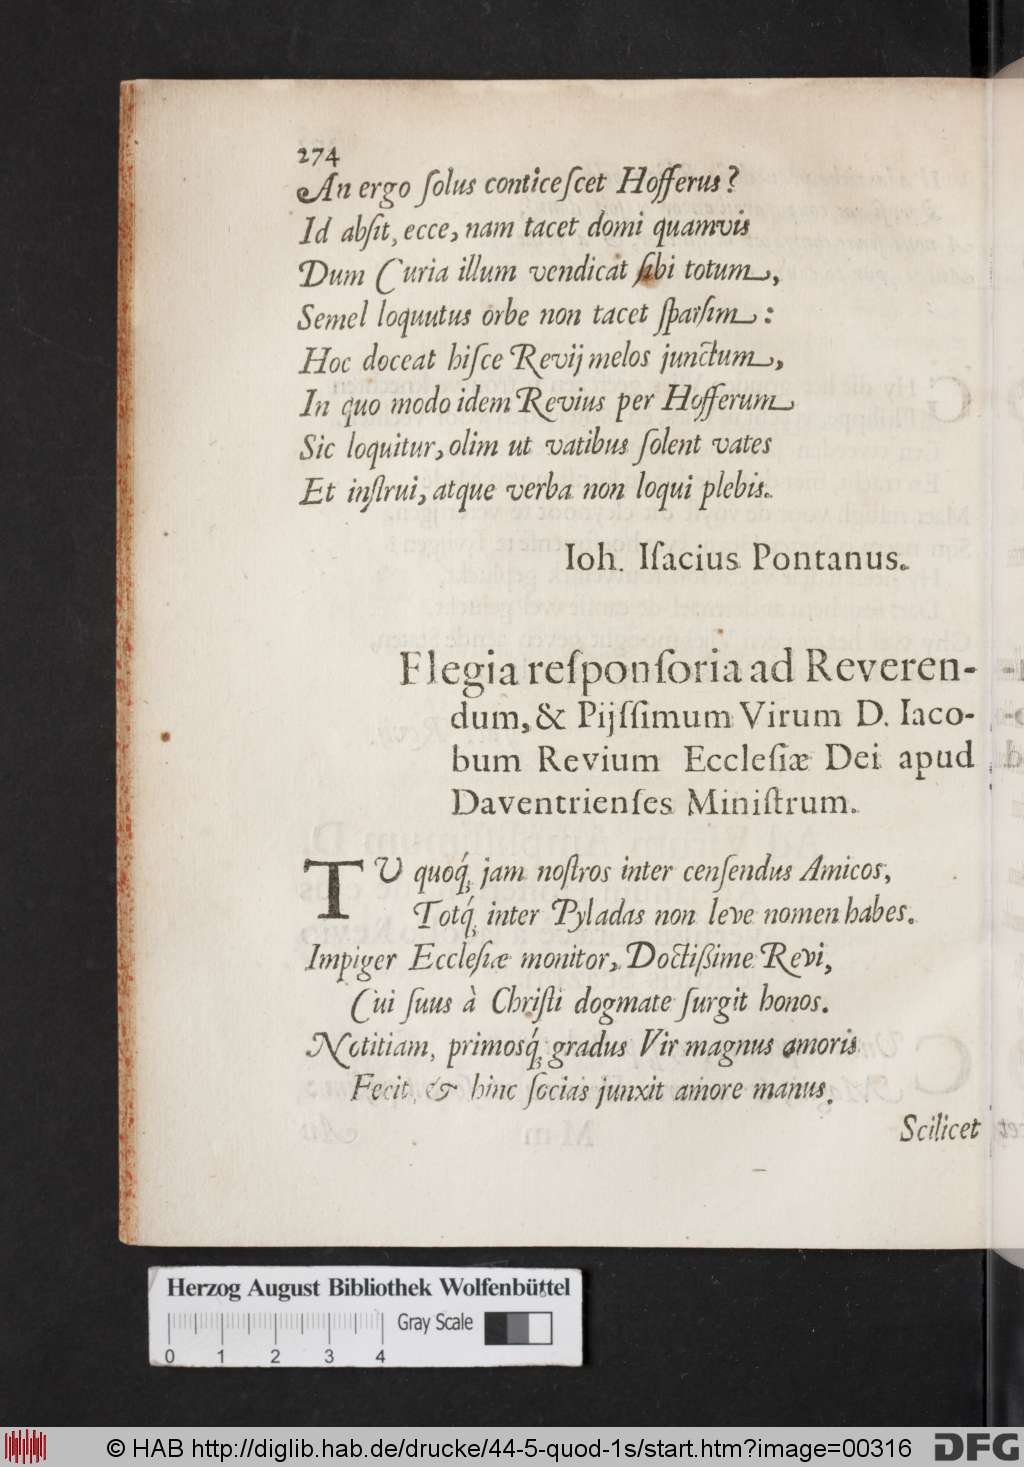 274
An ergo ſolus conticeſcet Hofferus?
Id abſit, ecce, nam tacet domi quamvis
Dum Curia illum vendicat ſibi totum,
Semel loquutus orbe non tacet ſparſim:
Hoc doceat hiſce Revij melos junctum,
In quo modo idem Revius per Hofferum
Sic loquitur, olim ut vatibus ſolent vates
Et inſtrui, atque verba non loqui plebis.
Ioh. Iſacius Pontanus.
Elegia reſponſoria ad Reveren-
dum, & Pijſſimum Virum D. Iaco-
bum Revium Eccleſiæ Dei apud
Daventrienſes Miniſtrum.
TU quoq́; jam noſtros inter cenſendus Amicos,
Totq́; inter Pyladas non leve nomen habes.
Impiger Eccleſiæ monitor, Doctißime Revi,
Cui ſuus à Chriſti dogmate ſurgit honos.
Notitiam, primosq́; gradus Vir magnus amoris
Fecit, & hinc ſocias junxit amore manus.
Scilicet
Herzog August Bibliothek Wolfenbüttel
0 1 2 3 4 Gray Scale
© HAB http://diglib.hab.de/drucke/44-5-quod-1s/start.htm?image=00316 DFG